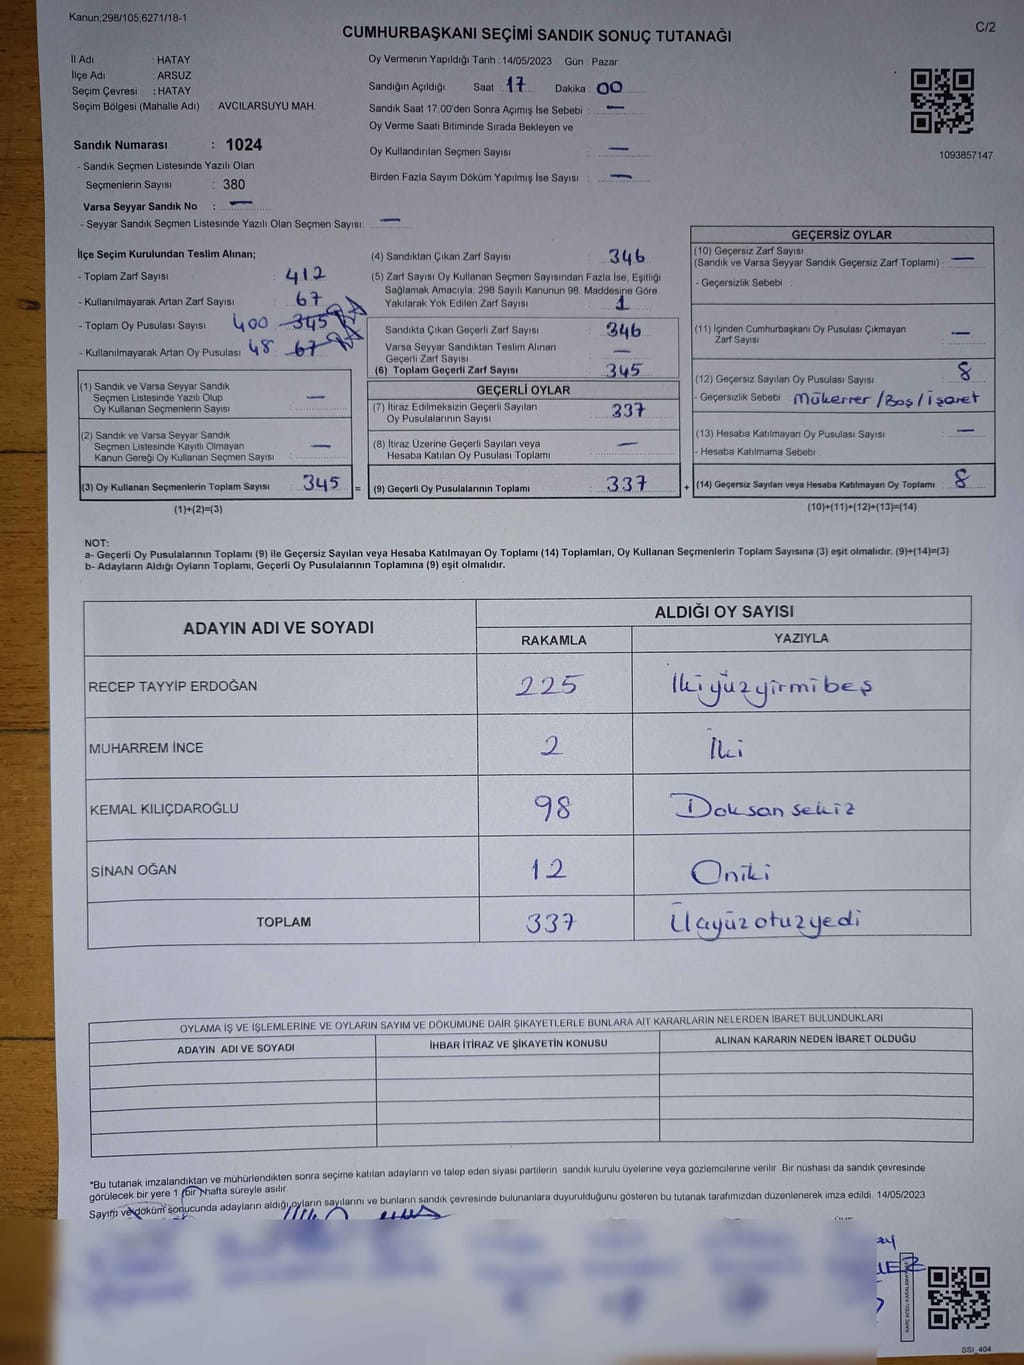 Kanun;298/105;6271/18-1
C/2
CUMHURBAŞKANI SEÇİMİ SANDIK SONUÇ TUTANAĞI
İl Adı : HATAY
İlçe Adı : ARSUZ
Seçim Çevresi : HATAY
Seçim Bölgesi (Mahalle Adı) : AVCILARSUYU MAH.
Sandık Numarası : 1024
- Sandık Seçmen Listesinde Yazılı Olan
Seçmenlerin Sayısı : 380
Varsa Seyyar Sandık No : —
- Seyyar Sandık Seçmen Listesinde Yazılı Olan Seçmen Sayısı: —
Oy Vermenin Yapıldığı Tarih : 14/05/2023 Gün : Pazar
Sandığın Açıldığı Saat : 17 Dakika : 00
Sandık Saat 17.00'den Sonra Açımış İse Sebebi : —
Oy Verme Saati Bitiminde Sırada Bekleyen ve
Oy Kullandırılan Seçmen Sayısı : —
Birden Fazla Sayım Döküm Yapılmış İse Sayısı : —
1093857147
İlçe Seçim Kurulundan Teslim Alınan;
- Toplam Zarf Sayısı : 412
- Kullanılmayarak Artan Zarf Sayısı : 67
- Toplam Oy Pusulası Sayısı 400 345
- Kullanılmayarak Artan Oy Pusulası 48 67
(1) Sandık ve Varsa Seyyar Sandık
Seçmen Listesinde Yazılı Olup
Oy Kullanan Seçmenlerin Sayısı : —
(2) Sandık ve Varsa Seyyar Sandık
Seçmen Listesinde Kayıtlı Olmayan
Kanun Gereği Oy Kullanan Seçmen Sayısı : —
(3) Oy Kullanan Seçmenlerin Toplam Sayısı : 345 =
(1)+(2)=(3)
(4) Sandıktan Çıkan Zarf Sayısı : 346
(5) Zarf Sayısı Oy Kullanan Seçmen Sayısından Fazla İse, Eşitliği
Sağlamak Amacıyla; 298 Sayılı Kanunun 98. Maddesine Göre
Yakılarak Yok Edilen Zarf Sayısı : 1
Sandıkta Çıkan Geçerli Zarf Sayısı : 346
Varsa Seyyar Sandıktan Teslim Alınan
Geçerli Zarf Sayısı : —
(6) Toplam Geçerli Zarf Sayısı : 345
GEÇERLİ OYLAR
(7) İtiraz Edilmeksizin Geçerli Sayılan
Oy Pusulalarının Sayısı : 337
(8) İtiraz Üzerine Geçerli Sayılan veya
Hesaba Katılan Oy Pusulası Toplamı : —
(9) Geçerli Oy Pusulalarının Toplamı : 337 +
GEÇERSİZ OYLAR
(10) Geçersiz Zarf Sayısı
(Sandık ve Varsa Seyyar Sandık Geçersiz Zarf Toplamı) : —
- Geçersizlik Sebebi :
(11) İçinden Cumhurbaşkanı Oy Pusulası Çıkmayan
Zarf Sayısı : —
(12) Geçersiz Sayılan Oy Pusulası Sayısı : 8
- Geçersizlik Sebebi : Mükerrer / Boş / İşaret
(13) Hesaba Katılmayan Oy Pusulası Sayısı : —
- Hesaba Katılmama Sebebi :
(14) Geçersiz Sayılan veya Hesaba Katılmayan Oy Toplamı : 8
(10)+(11)+(12)+(13)=(14)
NOT:
a- Geçerli Oy Pusulalarının Toplamı (9) ile Geçersiz Sayılan veya Hesaba Katılmayan Oy Toplamı (14) Toplamları, Oy Kullanan Seçmenlerin Toplam Sayısına (3) eşit olmalıdır. (9)+(14)=(3)
b- Adayların Aldığı Oyların Toplamı, Geçerli Oy Pusulalarının Toplamına (9) eşit olmalıdır.
ADAYIN ADI VE SOYADI
ALDIĞI OY SAYISI
RAKAMLA YAZIYLA
RECEP TAYYİP ERDOĞAN 225 İkiyüzyirmibeş
MUHARREM İNCE 2 İki
KEMAL KILIÇDAROĞLU 98 Doksan sekiz
SİNAN OĞAN 12 Oniki
TOPLAM 337 Üçyüzotuzyedi
OYLAMA İŞ VE İŞLEMLERİNE VE OYLARIN SAYIM VE DÖKÜMÜNE DAİR ŞİKAYETLERLE BUNLARA AİT KARARLARIN NELERDEN İBARET BULUNDUKLARI
ADAYIN ADI VE SOYADI İHBAR İTİRAZ VE ŞİKAYETİN KONUSU ALINAN KARARIN NEDEN İBARET OLDUĞU
*Bu tutanak imzalandıktan ve mühürlendikten sonra seçime katılan adayların ve talep eden siyasi partilerin sandık kurulu üyelerine veya gözlemcilerine verilir. Bir nüshası da sandık çevresinde
görülecek bir yere 1 (bir) hafta süreyle asılır.
Sayım ve döküm sonucunda adayların aldığı oyların sayılarını ve bunların sandık çevresinde bulunanlara duyurulduğunu gösteren bu tutanak tarafımızdan düzenlenerek imza edildi. 14/05/2023
SSI_404